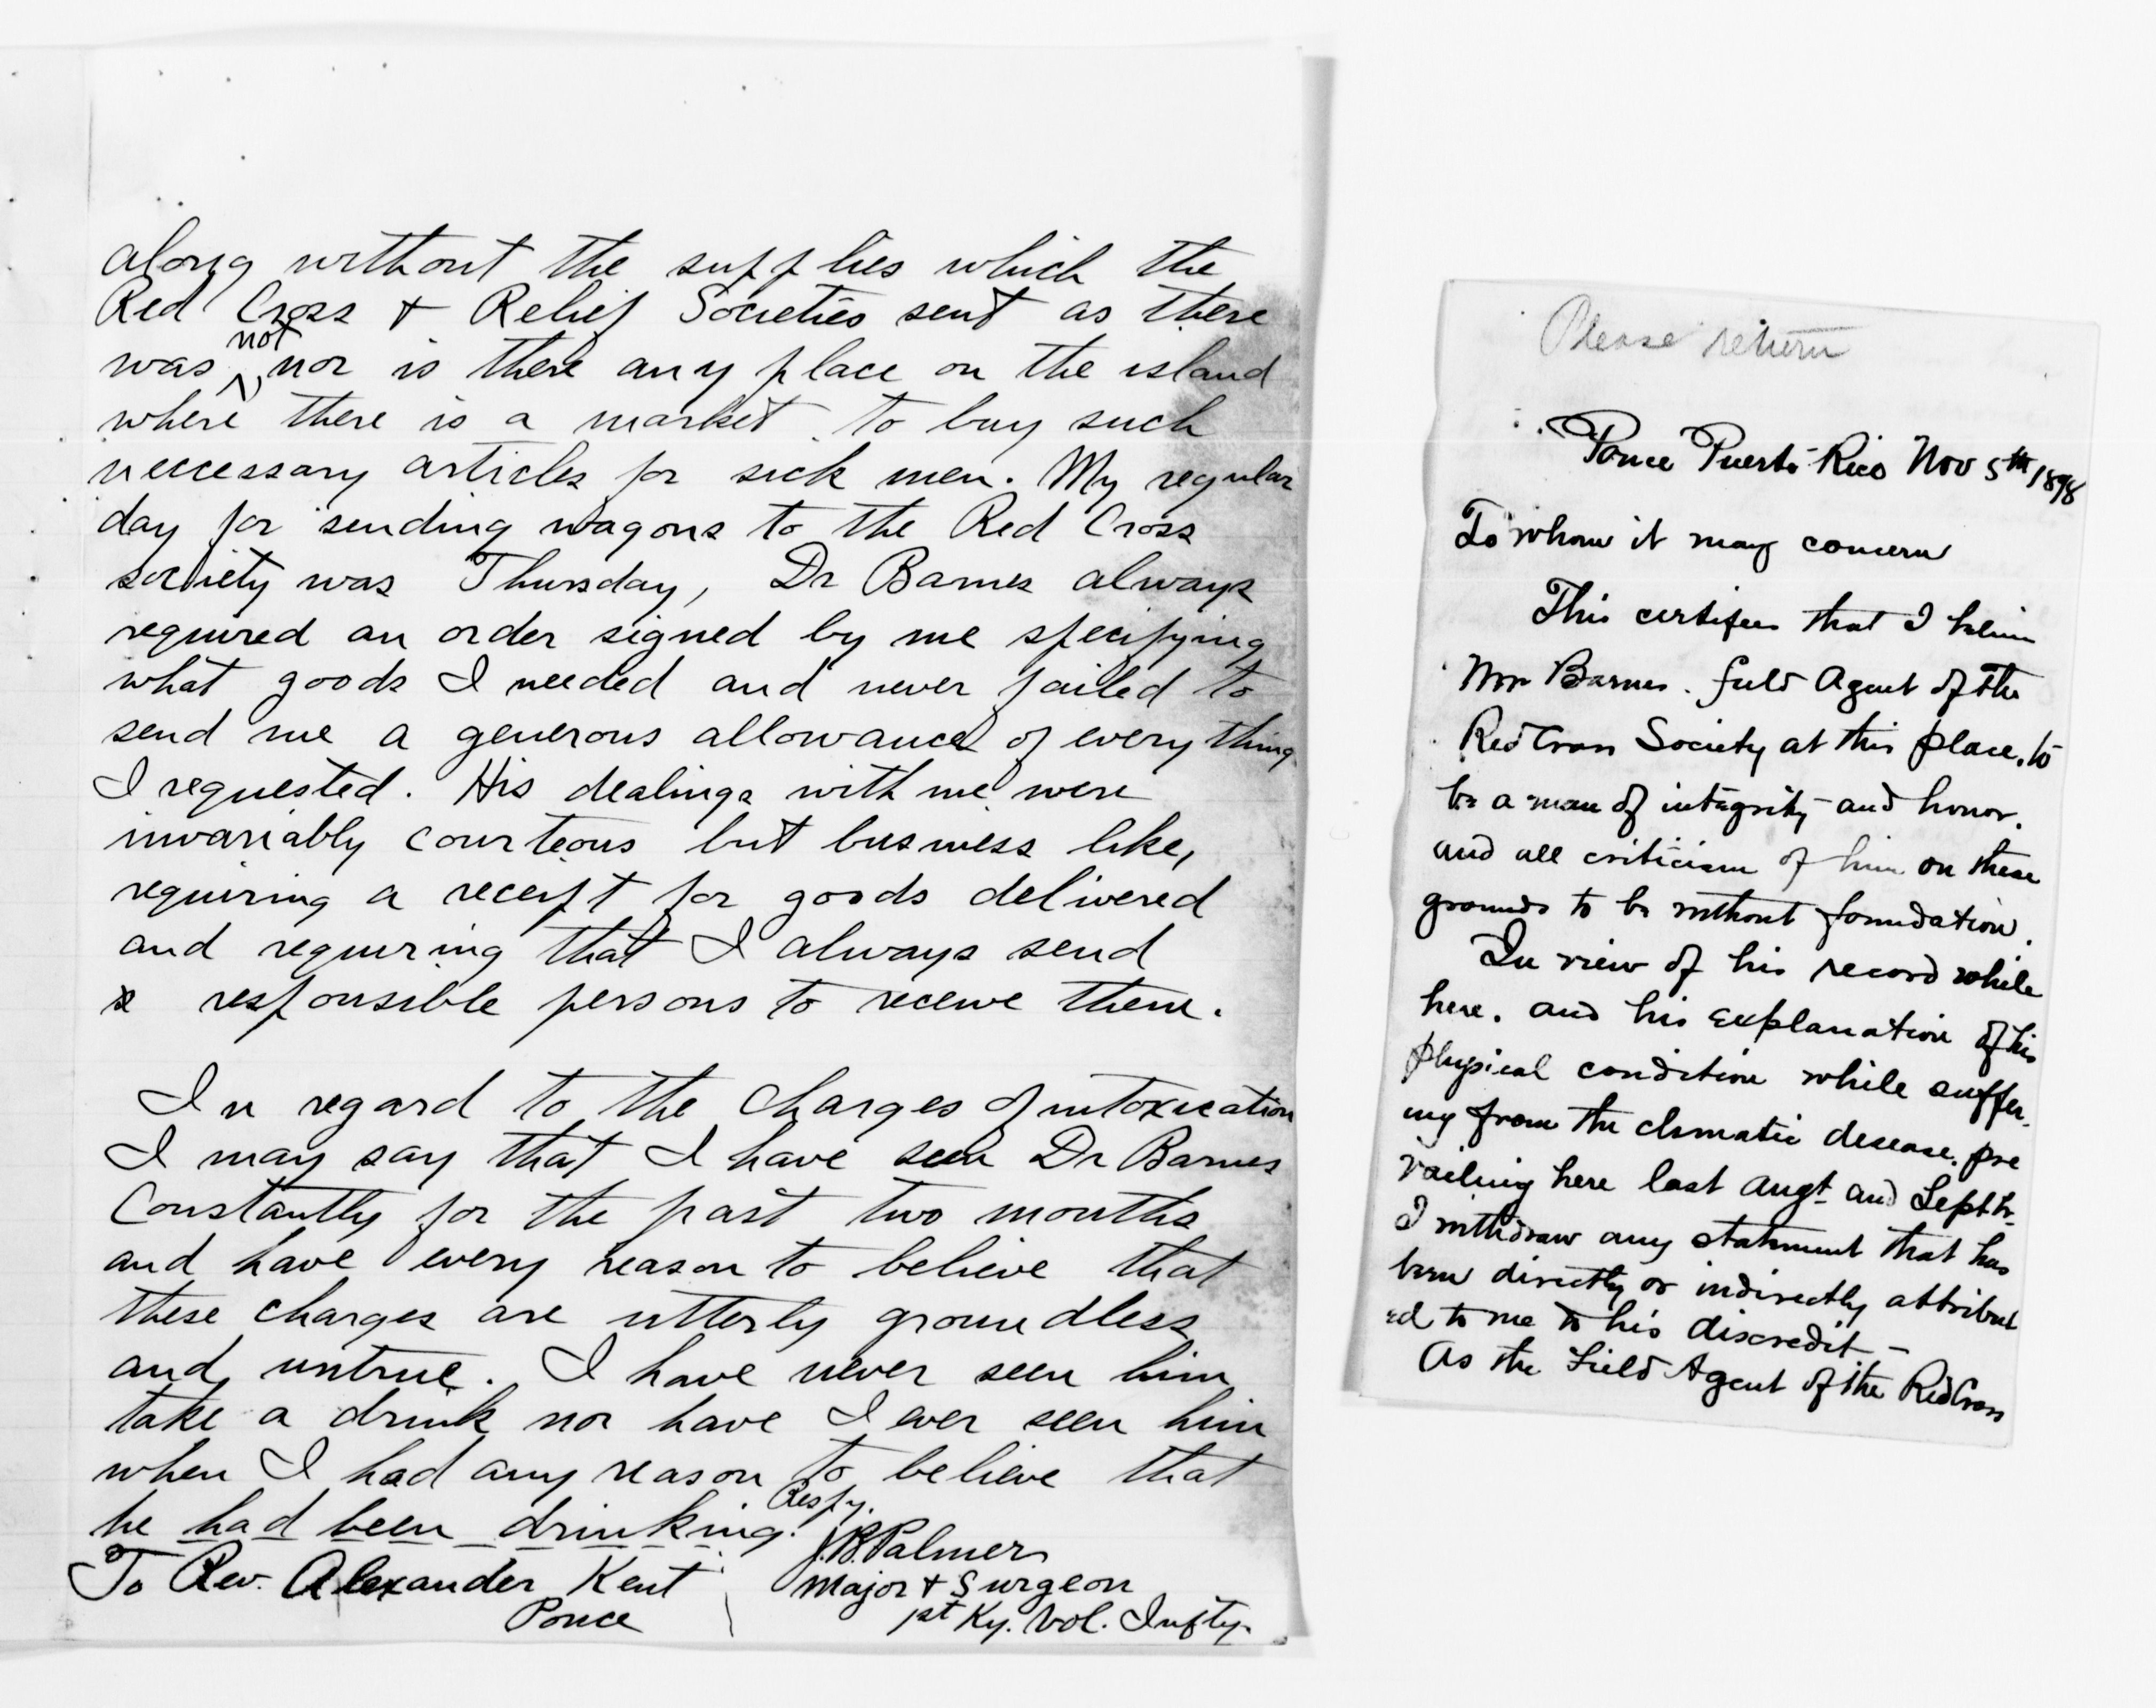 along without the supplies which the
Red Cross & Relief Societies sent as there
was not nor is there any place on the island
where there is a market to buy such
neccessary articles for sick men. My regular
day for sending wagons to the Red Cross
society was Thursday, Dr Barnes always
required an order signed by me specifying
what goods I needed and never failed to
send me a generous allowance of every thing
I requested. His dealings with me were
invariably courteous but business like,
requiring a receipt for goods delivered
and requiring that I always send
responsible persons to receive them.
In regard to the charges of intoxication
I may say that I have seen Dr Barnes
Constantly for the past two months
and have every reason to believe that
these charges are utterly groundless
and untrue. I have never seen him
take a drink nor have I ever seen him
when I had any reason to believe that
he had been drinking.
Respy.
J.B. Palmer
Major & Surgeon
1st Ky. Vol. Infty.
To Rev. Alexander Kent
Ponce
Please return
Ponce Puerto Rico Nov 5th 1898
To whom it may concern
This certifies that I believe
Mr Barnes. field Agent of the
Red Cross Society at this place, to
be a man of integrity and honor.
and all criticism of him on these
grounds to be without foundation.
In view of his record while
here. and his explanation of his
physical condition while suffer-
ing from the climatic disease pre
vailing here last Augt and Septbr-
I withdraw any statement that has
been directly or indirectly attribut
ed to me to his discredit -
As the Field Agent of the Red Cross